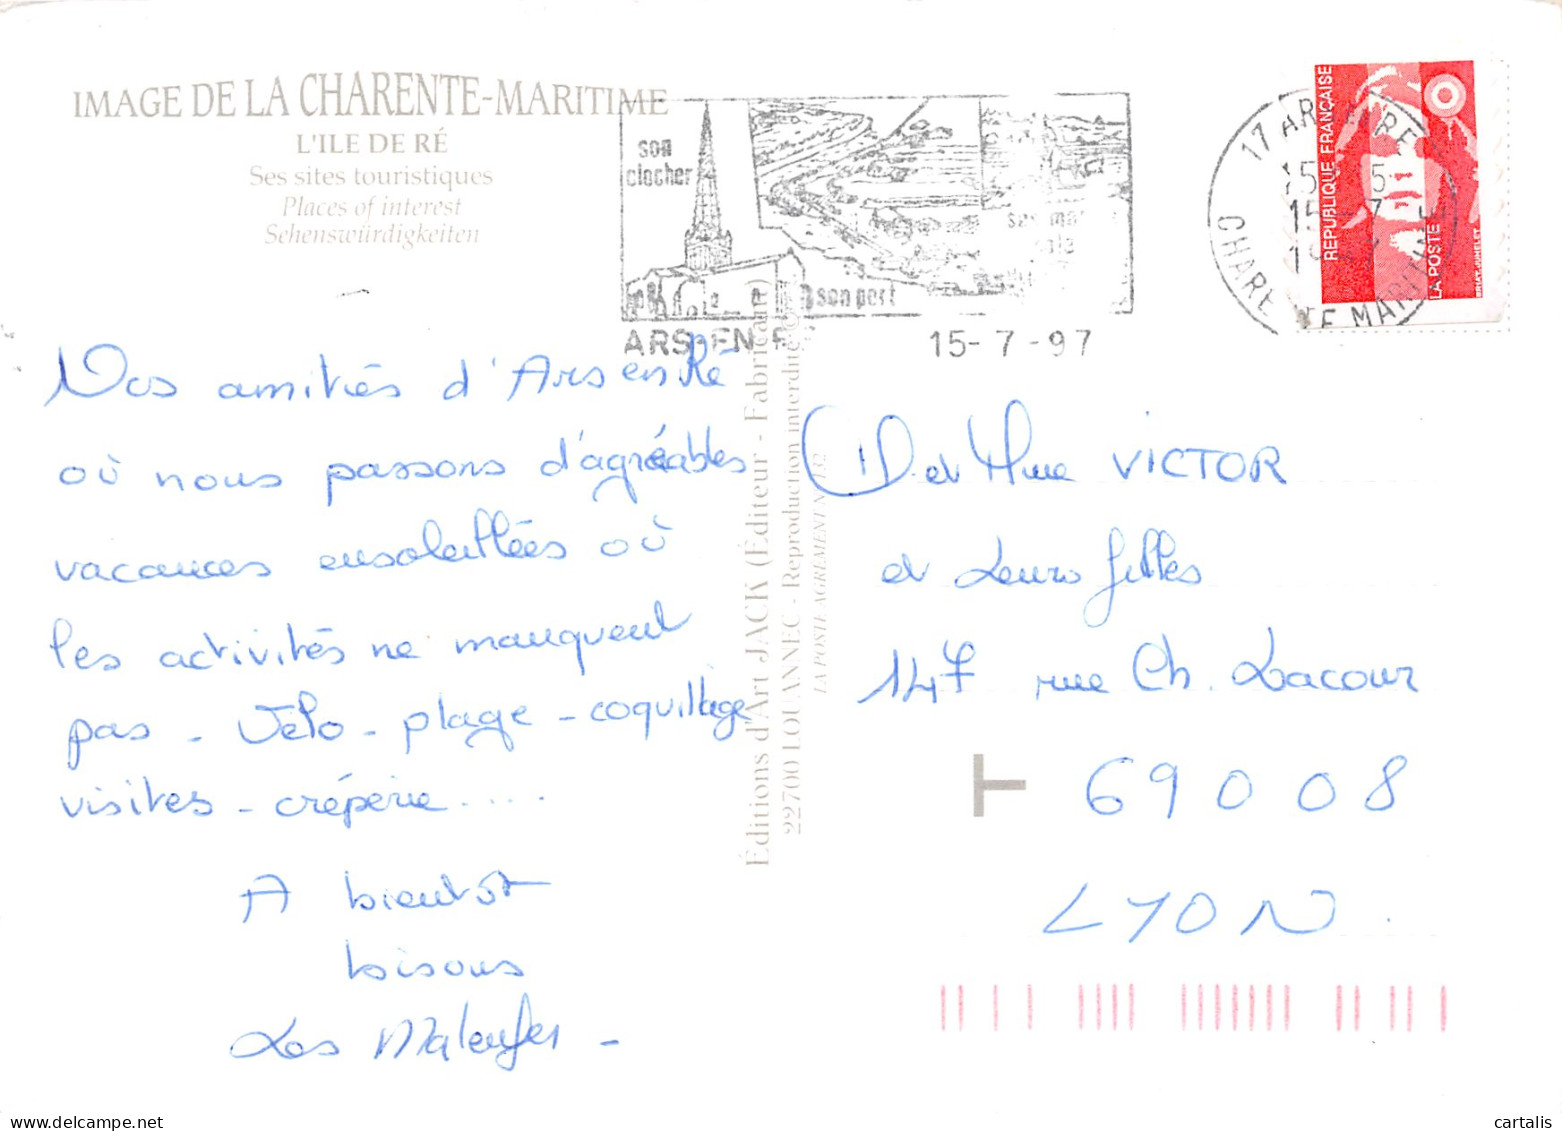 IMAGE DE LA CHARENTE-MARITIME
L'ILE DE RÉ
Ses sites touristiques
Places of interest
Sehenswürdigkeiten
son
clocher
son port
ARS-EN-R
15-7-97
17 ARS EN RE
CHARENTE MARITIME
REPUBLIQUE FRANÇAISE
LA POSTE
Nos amitiés d'Ars en Ré
où nous passons d'agréables
vacances ensoleillées où
les activités ne manquent
pas - Vélo - plage - coquillage
visites - crêperie .....
A bientôt
bisous
Les
Éditions d'Art JACK (Éditeur - Fabricant)
22700 LOUANNEC - Reproduction interdite ©
LA POSTE AGREMENT N° 132
et Mme VICTOR
et Leurs filles
147 rue Ch. Lacour
T
69008
LYON.
cartalis